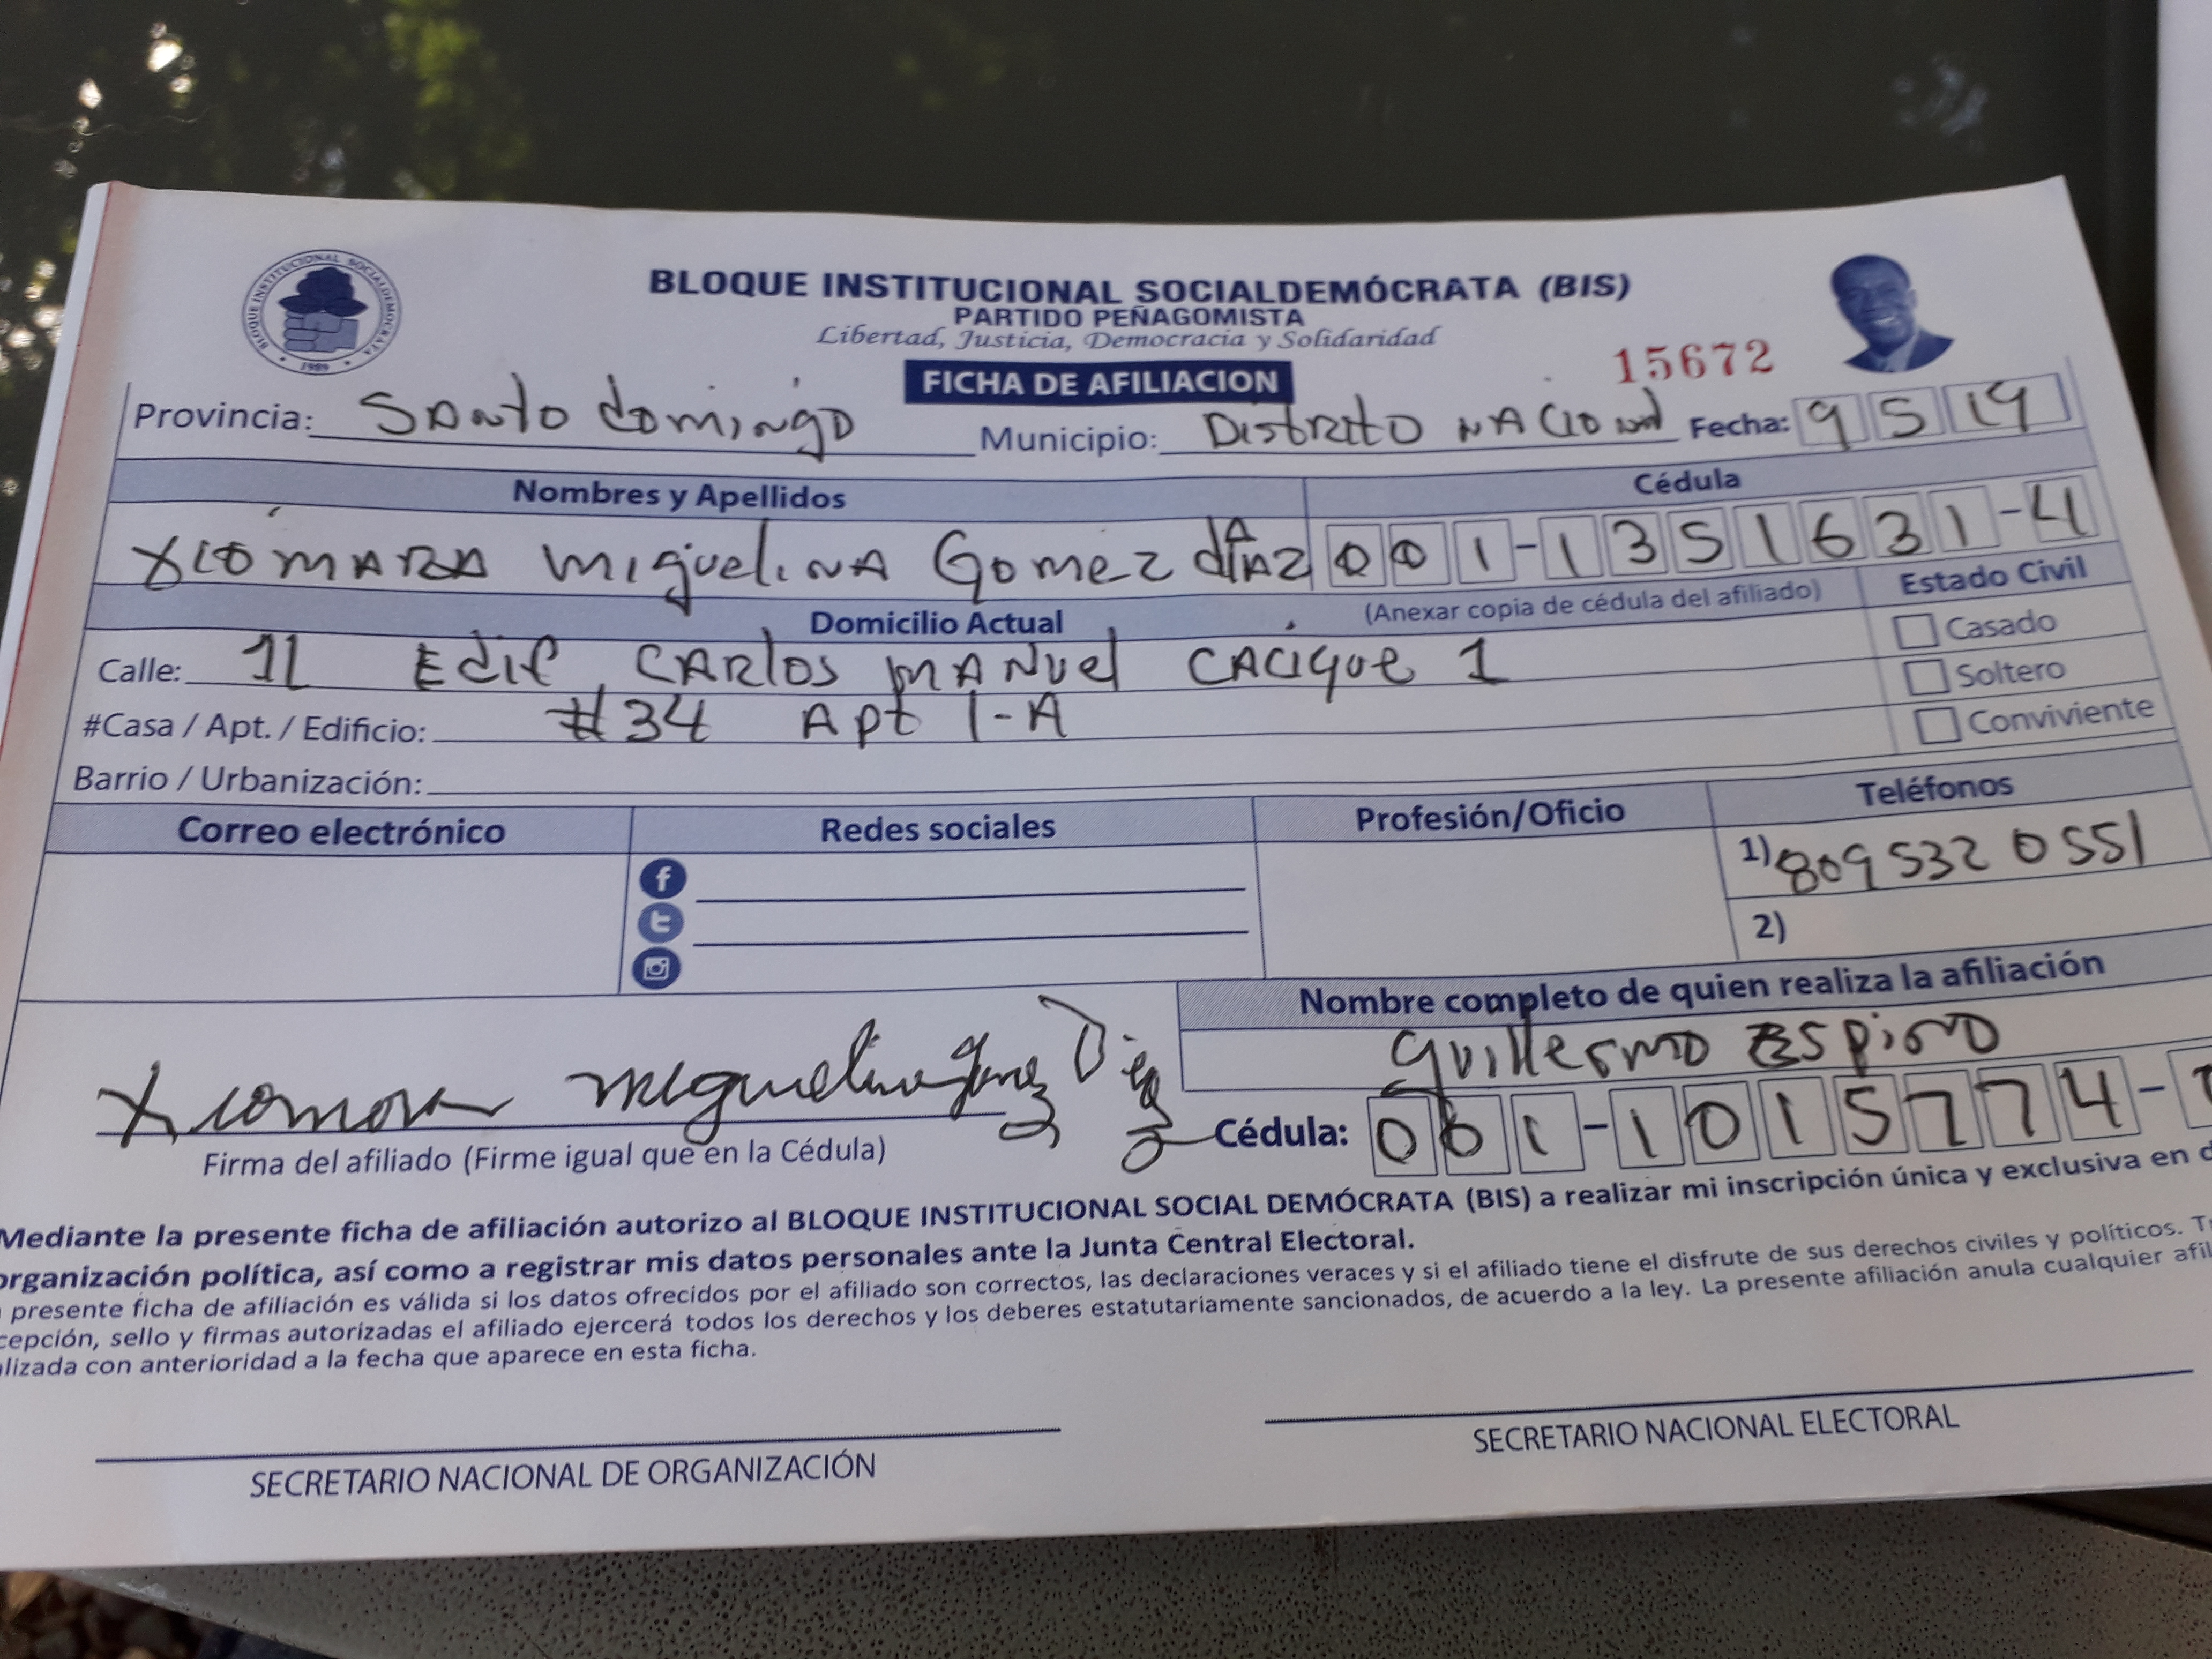 BLOQUE INSTITUCIONAL SOCIALDEMOCRATA
1989
BLOQUE INSTITUCIONAL SOCIALDEMÓCRATA (BIS)
PARTIDO PEÑAGOMISTA
Libertad, Justicia, Democracia y Solidaridad
15672
FICHA DE AFILIACION
Provincia: Santo Domingo Municipio: Distrito Nacional Fecha: 9 5 19
Nombres y Apellidos Cédula
Xiomara Miguelina Gomez díaz 001-1351631-4
Domicilio Actual (Anexar copia de cédula del afiliado) Estado Civil
Calle: 11 Edif CARlos MANuel CACique 1 Casado
#Casa / Apt. / Edificio: #34 Apt 1-A Soltero
Conviviente
Barrio / Urbanización:
Correo electrónico Redes sociales Profesión/Oficio Teléfonos
1) 809 532 0551
2)
Nombre completo de quien realiza la afiliación
Guillermo Espino
Xiomara Miguelina Gomez Diaz
Firma del afiliado (Firme igual que en la Cédula) Cédula: 001-1015774-
Mediante la presente ficha de afiliación autorizo al BLOQUE INSTITUCIONAL SOCIAL DEMÓCRATA (BIS) a realizar mi inscripción única y exclusiva en
organización política, así como a registrar mis datos personales ante la Junta Central Electoral.
presente ficha de afiliación es válida si los datos ofrecidos por el afiliado son correctos, las declaraciones veraces y si el afiliado tiene el disfrute de sus derechos civiles y políticos.
cepción, sello y firmas autorizadas el afiliado ejercerá todos los derechos y los deberes estatutariamente sancionados, de acuerdo a la ley. La presente afiliación anula cualquier afil
lizada con anterioridad a la fecha que aparece en esta ficha.
SECRETARIO NACIONAL DE ORGANIZACIÓN SECRETARIO NACIONAL ELECTORAL